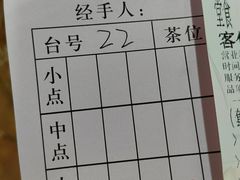 经手人：
台号 22 茶位
小点
中点
堂食
客
营业
时间
服务
品